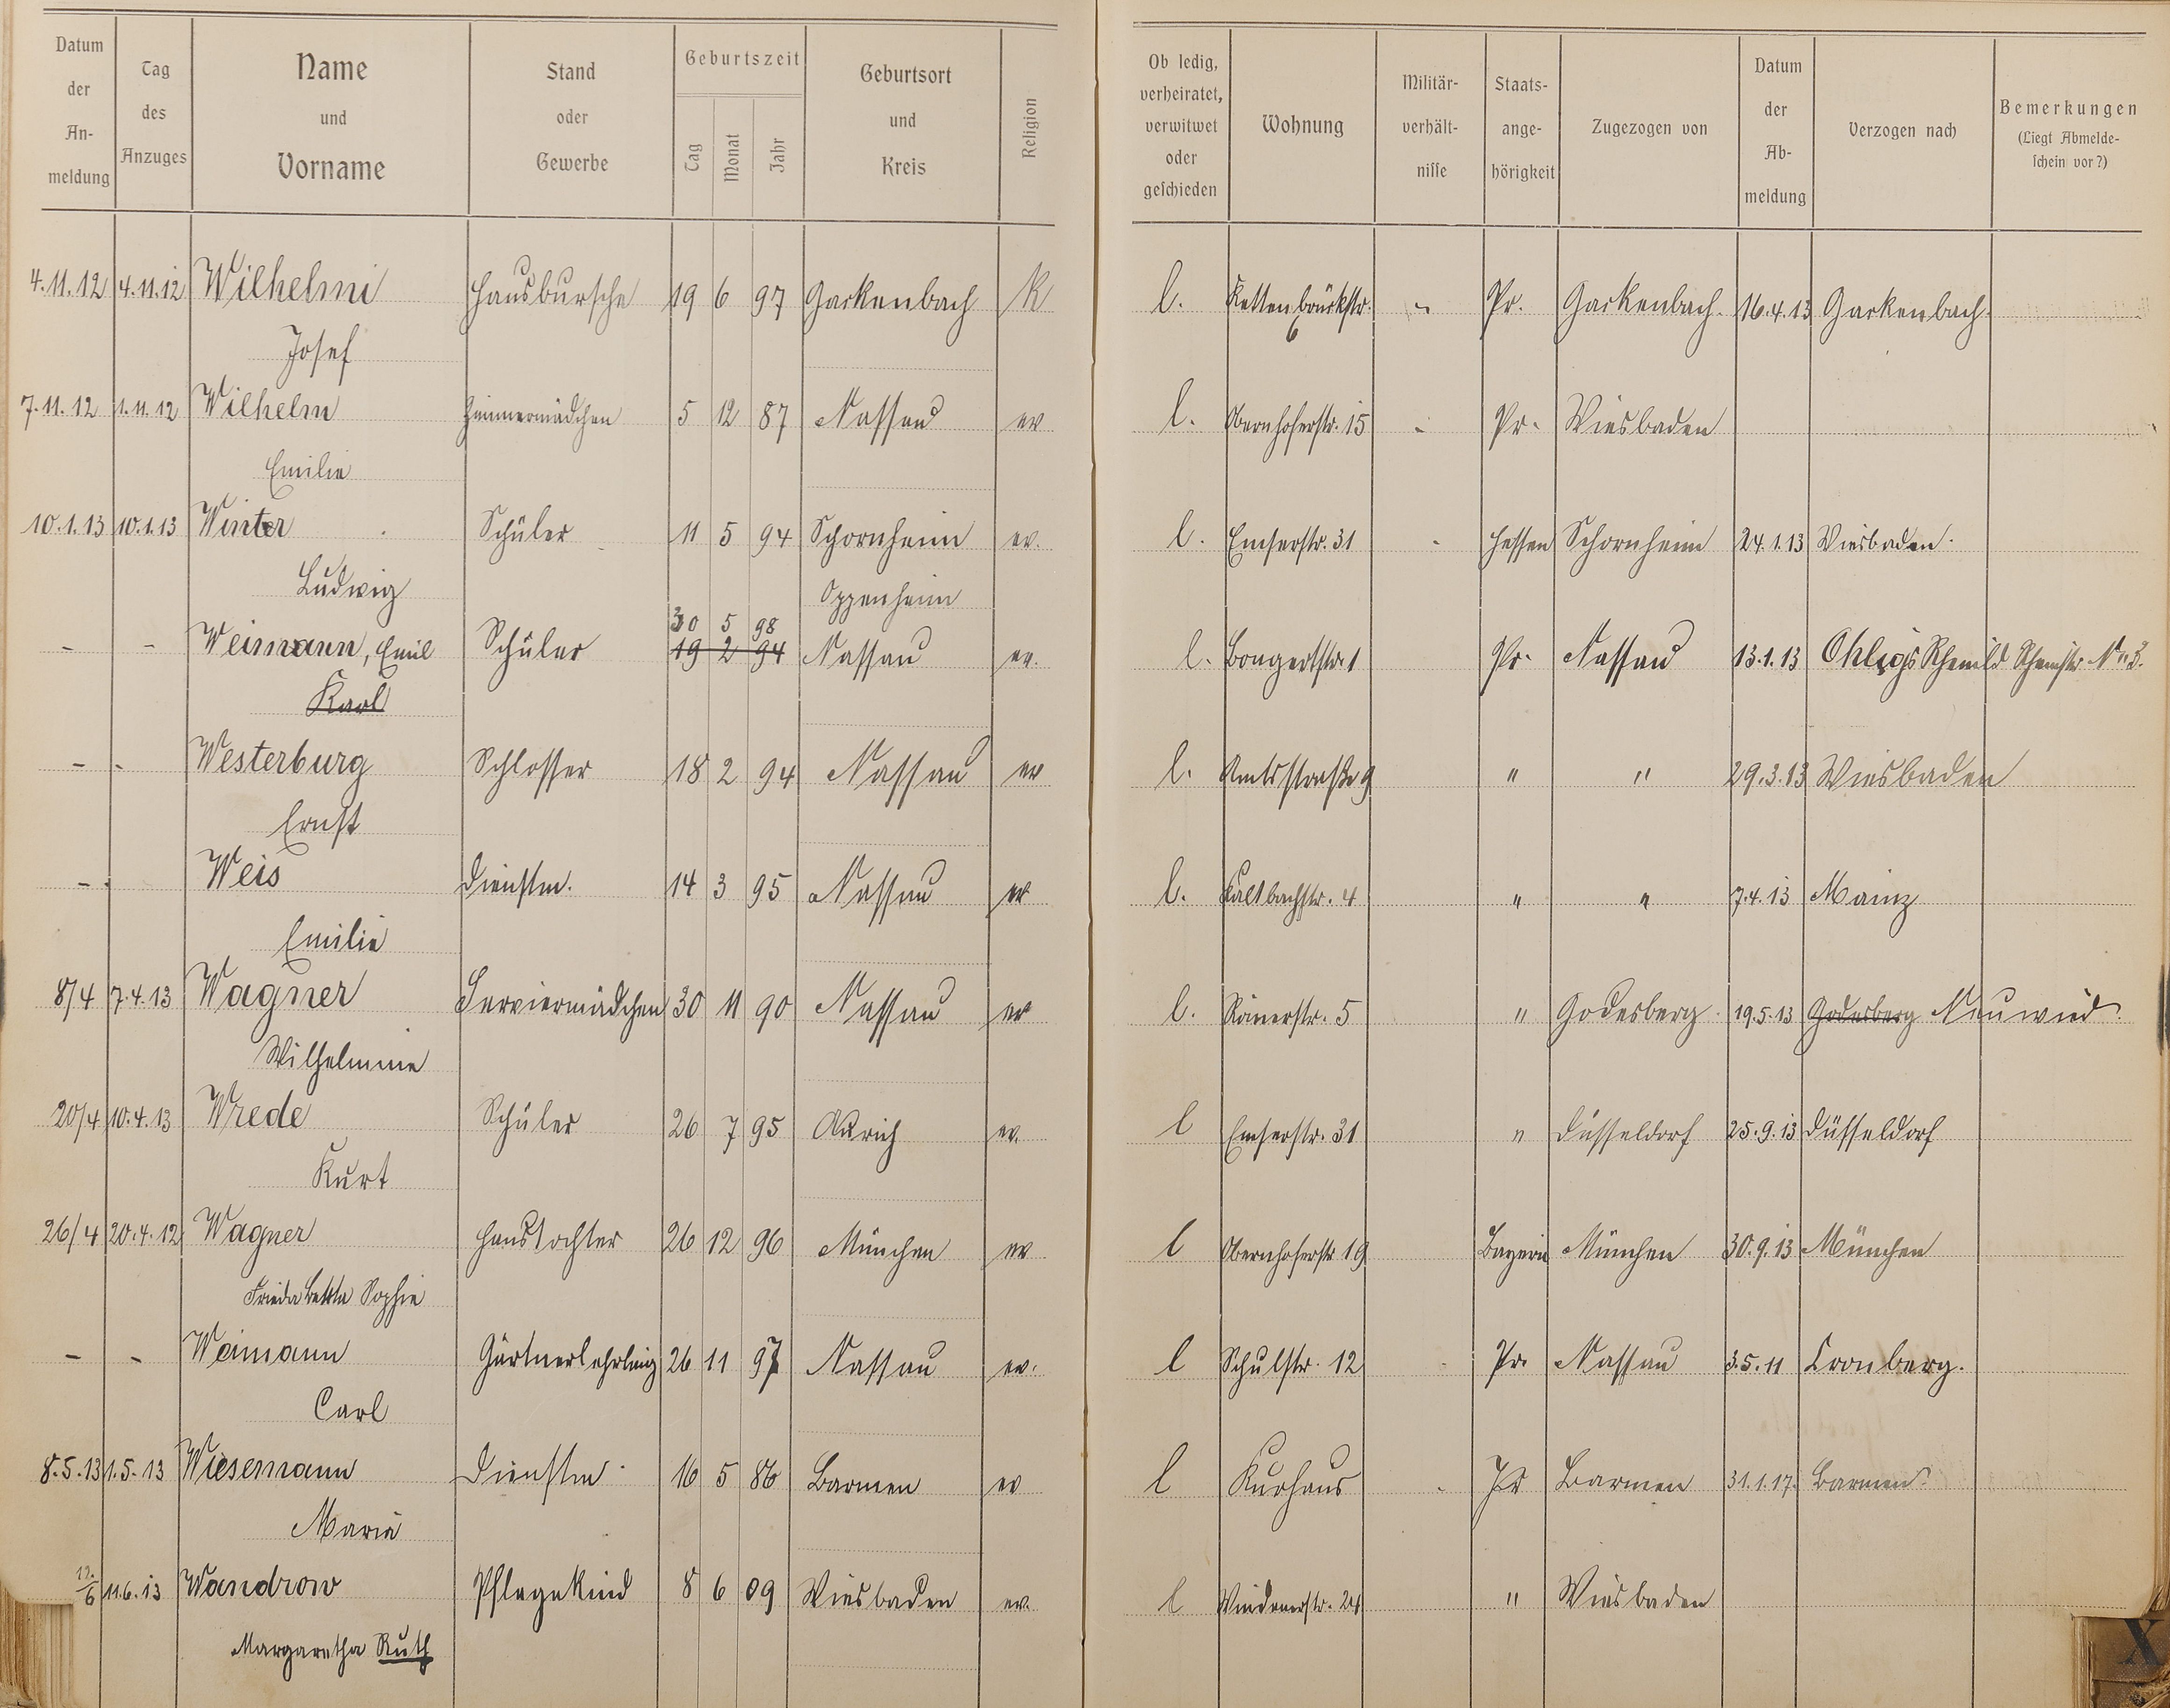 Datum der An-meldung | Tag des Anzuges | Name und Vorname | Stand oder Gewerbe | Geburtszeit Tag Monat Jahr | Geburtsort und Kreis | Religion | Ob ledig, verheiratet, verwitwet oder geschieden | Wohnung | Militär-verhält-nisse | Staats-ange-hörigkeit | Zugezogen von | Datum der Ab-meldung | Verzogen nach | Bemerkungen (Liegt Abmelde-schein vor?)
4.11.12 4.11.12 Wilhelmi Hausbursche 19 6 97 Gackenbach K l. Kettenbrückstr. 6 - Pr. Gackenbach. 16.4.13 Gackenbach.
Josef
7.11.12 1.11.12 Wilhelm Zimmermädchen 5 12 87 Nassau ev l. Obernhoferstr. 15 - Pr. Wiesbaden
Emilie
10.1.13 10.1.13 Winter Schüler 11 5 94 Schornheim ev. l. Emserstr. 31 - Hessen Schornheim 24.1.13 Wiesbaden.
Ludwig Oppenheim
30 5 98
- - Weimann, Emil Schüler 19 2 94 Nassau ev. l. Bongertstr. 1 Pr. Nassau 13.1.13 Ohligs Rheinstr. No 3.
Karl
- - Westerburg Schlosser 18 2 94 Nassau ev l. Amtsstraße 9 " " 29.3.13 Wiesbaden
Ernst
- . Weis Dienstm. 14 3 95 Nassau ev l. Kaltbachstr. 4 " " 7.4.13 Mainz
Emilie
8/4 7.4.13 Wagner Serviermädchen 30 11 90 Nassau ev l. Römerstr. 5 " Godesberg. 19.5.13 Godesberg Neuwied.
Wilhelmine
20/4 10.4.13 Wrede Schüler 26 7 95 Aurich ev. l Emserstr. 31 " Düsseldorf 25.9.13 Düsseldorf
Kurt
26/4 20.4.12 Wagner Haustochter 26 12 96 München ev l Obernhoferstr 19 Bayern München 30.9.13 München
Frieda Sophie
- - Weimann Gärtnerlehrling 26 11 97 Nassau ev. l Schulstr. 12 Pr. Nassau 3.5.11 Cronberg.
Carl
8.5.13 1.5.13 Wiesemann Dienstm. 16 5 86 Barmen ev l Kurhaus - Pr Barmen 31.1.17. Barmen.
Maria
12./6 11.6.13 Wandrow Pflegekind 8 6 09 Wiesbaden ev. l Windenerstr. 24 " Wiesbaden
Margaretha Ruth
X